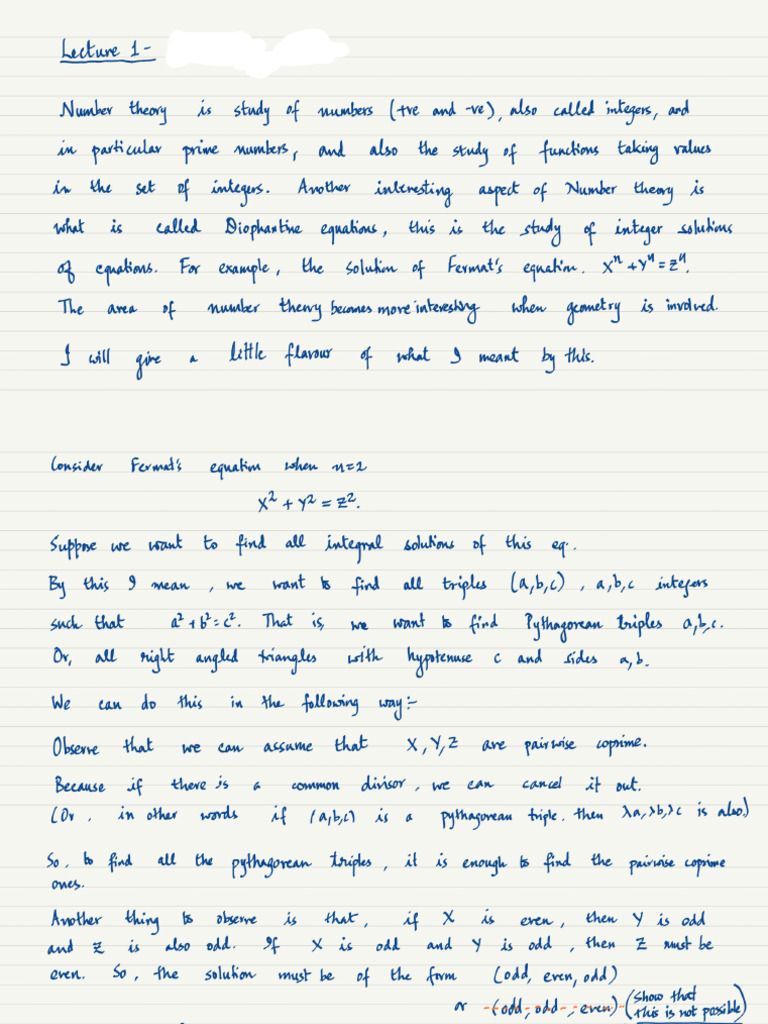 Lecture 1-
Number theory is study of numbers (+ve and -ve), also called integers, and
in particular prime numbers, and also the study of functions taking values
in the set of integers. Another interesting aspect of Number theory is
what is called Diophantine equations, this is the study of integer solutions
of equations. For example, the solution of Fermat's equation. Xⁿ+Yⁿ=Zⁿ.
The area of number theory becomes more interesting when geometry is involved.
I will give a little flavour of what I meant by this.
Consider Fermat's equation when n=2
X² + Y² = Z².
Suppose we want to find all integral solutions of this eq.
By this I mean, we want to find all triples (a,b,c), a,b,c integers
such that a²+b²=c². That is, we want to find Pythagorean triples a,b,c.
Or, all right angled triangles with hypotenuse c and sides a,b.
We can do this in the following way:-
Observe that we can assume that X,Y,Z are pairwise coprime.
Because if there is a common divisor, we can cancel it out.
(Or, in other words if (a,b,c) is a pythagorean triple. then λa,λb,λc is also)
So, to find all the pythagorean triples, it is enough to find the pairwise coprime
ones.
Another thing to observe is that, if X is even, then Y is odd
and Z is also odd. If X is odd and Y is odd, then Z must be
even. So, the solution must be of the form (odd, even, odd)
or (odd, odd, even) (show that
this is not possible)